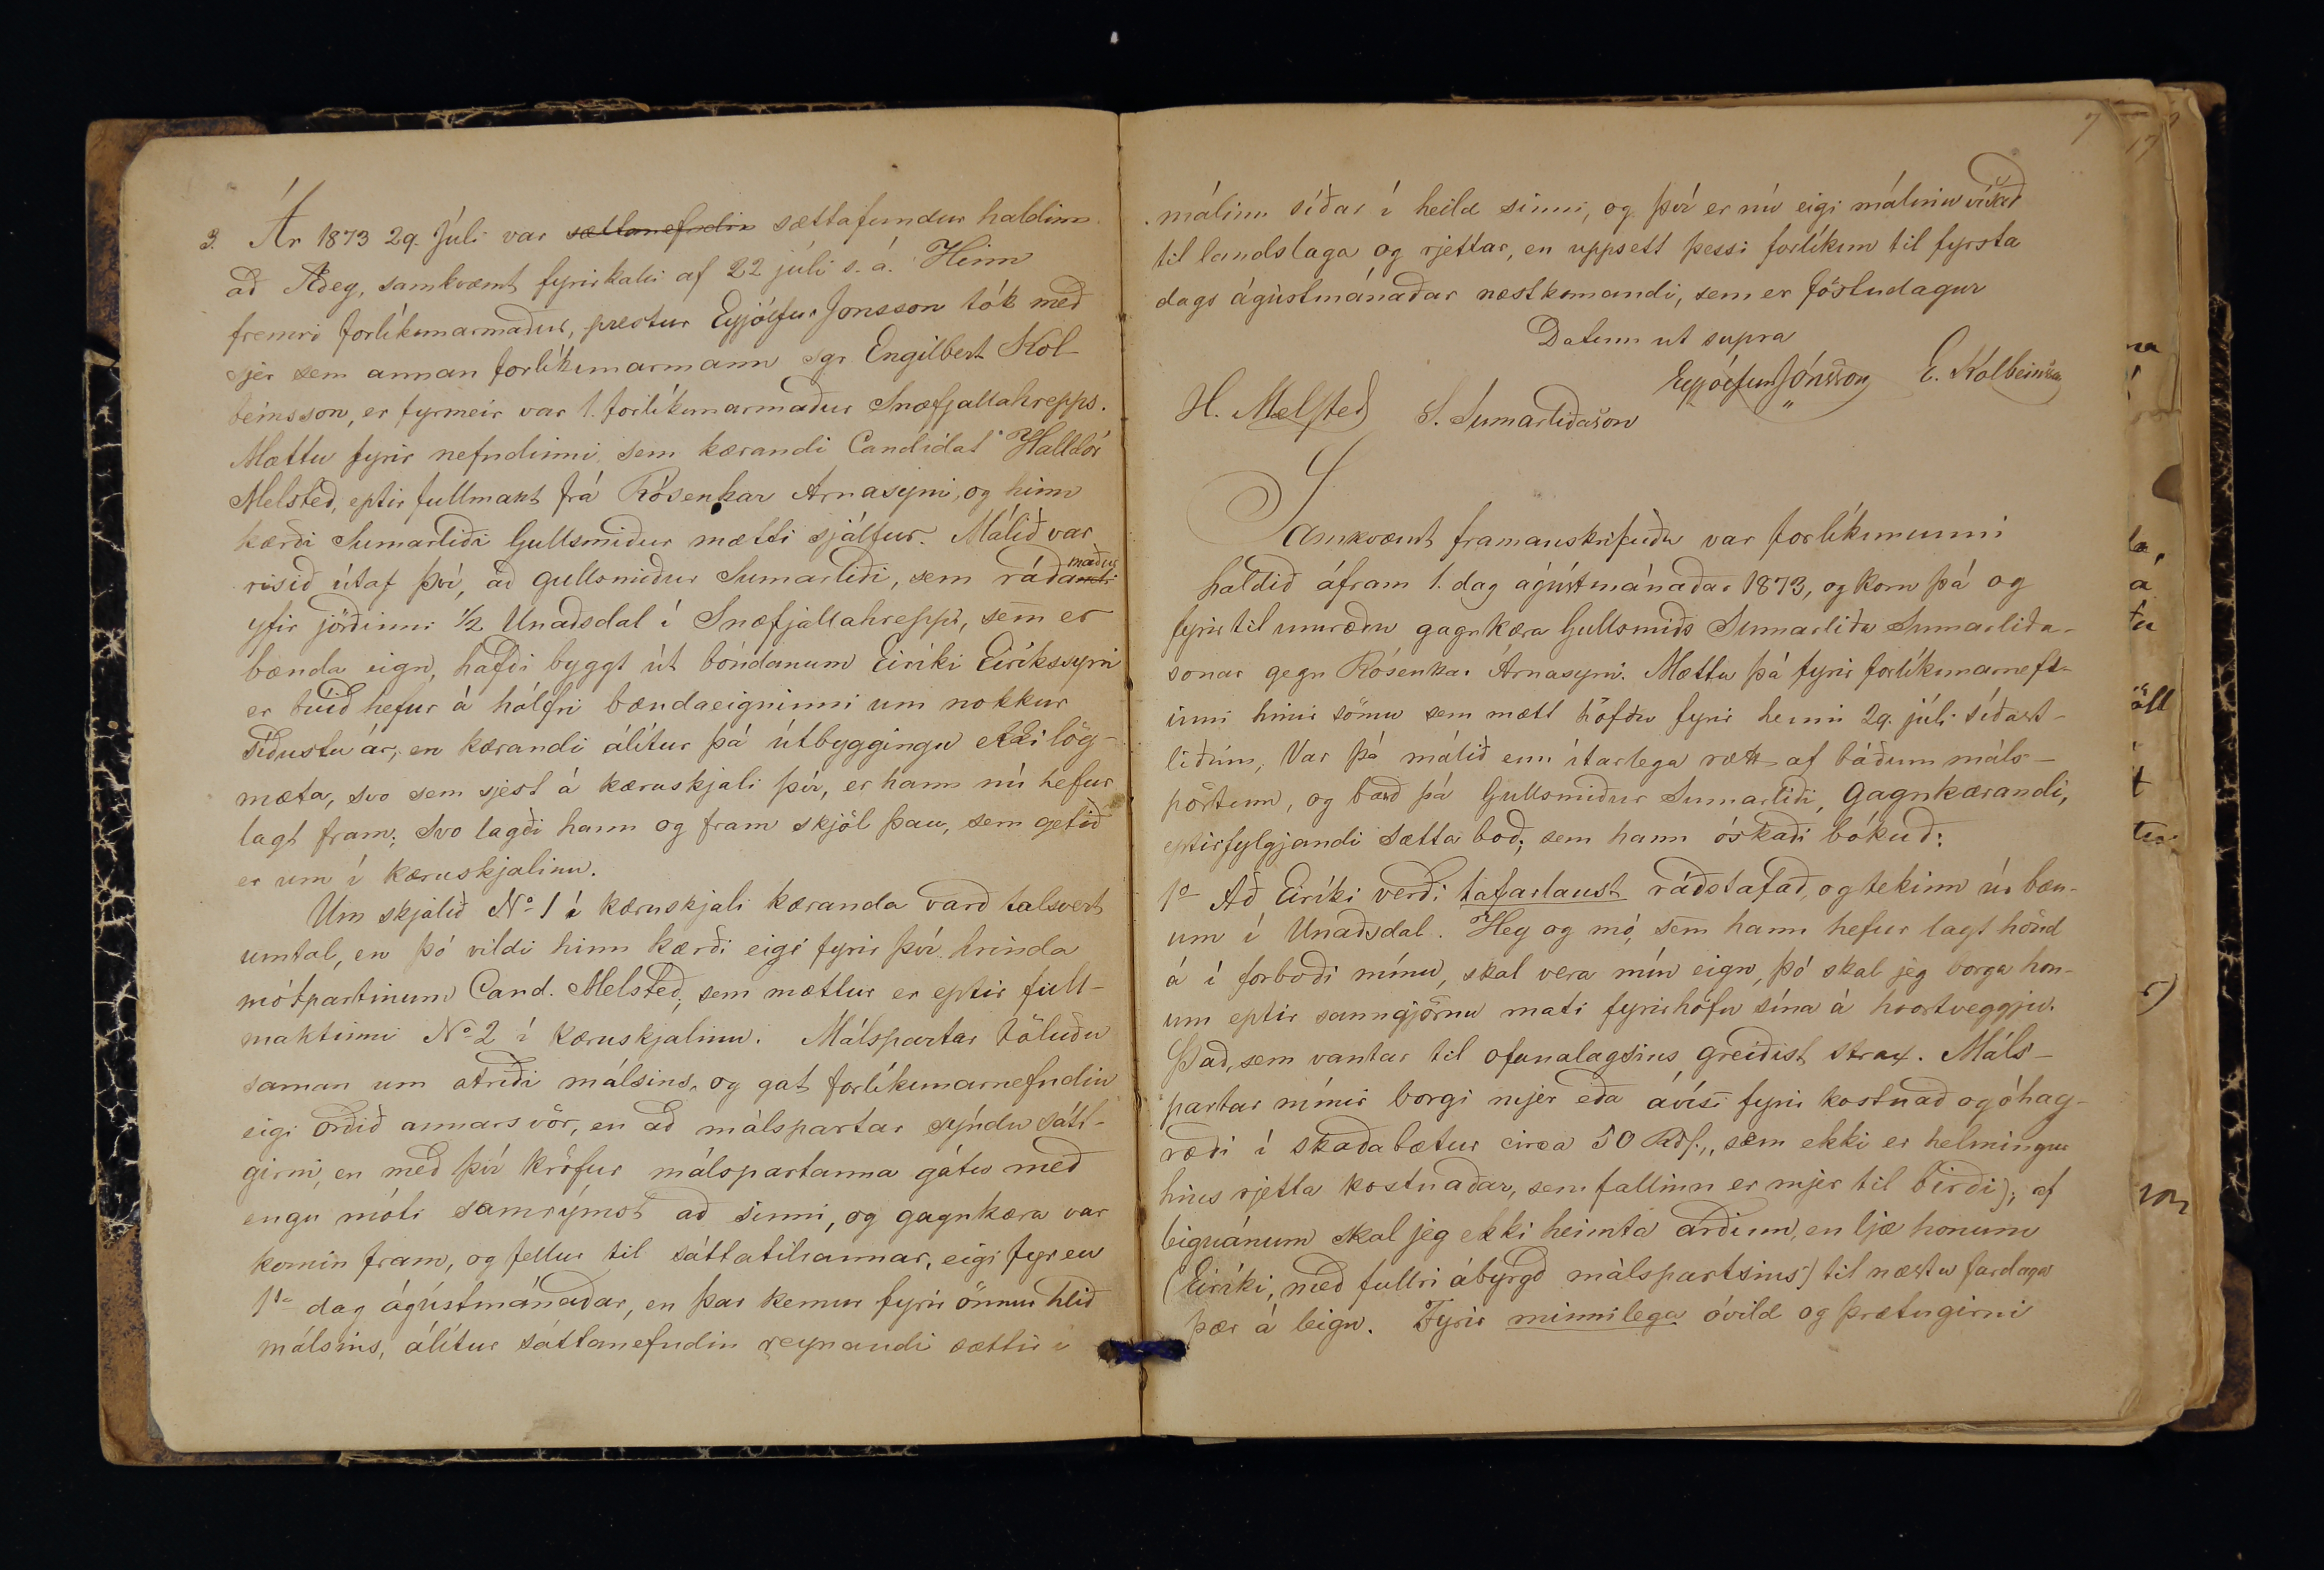 3. Ár 1873 29. Júli var sættanefndin sættafundur haldinn
að Æðey, samkvæmt fyrirkalli af 22 júli s. á. Hinn
fremri forlíkunarmaður, prestur Eyjólfur Jonsson tók með
sjer sem annan forlíkunarmann sgr. Engilbert Kol-
beinsson, er fyrmeir var 1. forlíkunarmaður Snæfjallahrepps.
Mættu fyrir nefndinni sem kærandi Candidat Halldór
Melsteð, eptir fullmakt frá Rósenkar Arnasyni, og hinn
kærði Sumarliði Gullsmiður mætti sjálfur. Málið var
risið útaf því, að gullsmiður Sumarliði, sem ráðamaður
yfir jörðinni ½ Unaðsdal í Snæfjallahreppi, sem er
bænda eign, hafði byggt út bóndanum Eiríki Eiríkssyni
er búið hefur á hálfri bændaeigninni um nokkur
síðustu ár, en kærandi álítur þá útbyggingu ekki lög-
mæta, svo sem sjest á kæruskjali því, er hann nú hefur
lagt fram; Svo lagði hann og fram skjöl þau, sem getið
er um í kæruskjalinu.
Um skjalið No 1 í kæruskjali kæranda varð talsvert
umtal, en þó vildi hinn kærði eigi fyrir því hrinda
mótpartinum Cand. Melsteð, sem mættur er eptir full-
maktinni No 2 í kæruskjalinu. Málspartar töluðu
saman um atriði málsins, og gat forlíkunarnefndin
eigi orðið annars vör, en að málspartar sýndu sátt-
girni, en með því kröfur málspartanna gátu með
engu móti samrýmst að sinni, og gagnkæra var
komin fram, og fellur til sáttatilraunar, eigi fyr en
1ta dag ágústmánaðar, en þar kemur fyrir önnur hlið
málsins, álítur sáttanefndin reynandi sættir í
7
málinu síðar í heild sinni, og því er nú eigi málinu vísað
til landslaga og rjettar, en uppsett þessi forlíkun til fyrsta
dags ágústmánaðar næstkomandi, sem er föstudagur
Datum ut supra
Eyjólfur Jónsson E. Kolbeinsson
H. Melsteð S. Sumarliðason
Samkvæmt framanskrifuðu var forlíkuninni
haldið áfram 1. dag ágústmánaðar 1873, og kom þá og
fyrir til umræðu gagnkæra Gullsmiðs Sumarliða Sumarliða-
sonar gegn Rósenkar Árnasyni. Mættu þá fyrir forlíkunarnefd-
inni hinir sömu sem mætt höfðu fyrir henni 29. júli síðast-
liðinn, Var þá málið enn ítarlega rætt af báðum máls-
pörtum, og bauð þá Gullsmiður Sumarliði, Gagnkærandi,
eptirfylgjandi Sætta boð, sem hann óskaði bókuð:
1o Að Eiríki verði tafarlaust ráðstafað, og tekinn úr bæn-
um í Unaðsdal. Hey og mó, sem hann hefur lagt hönd
á í forboði mínu, skal vera mín eign, þó skal jeg borga hon-
um eptir sanngjörnu mati fyrirhöfn sína á hvortveggju.
Það, sem vantar til ofanalagsins greiðist strax. Máls-
partar mínir borgi mjer eða ávísi fyrir kostnað og óhag-
ræði í skaðabætur circa 50 Rdl., sem ekki er helmingur
hins rjetta kostnaðar, sem fallinn er mjer til birði); af
leiguánum skal jeg ekki heimta arðinn, en ljæ honum
(Eiríki, með fullri ábyrgð málspartsins) til næstu fardaga
þær á leigu. Fyrir minnilega óvild og þrætugirni